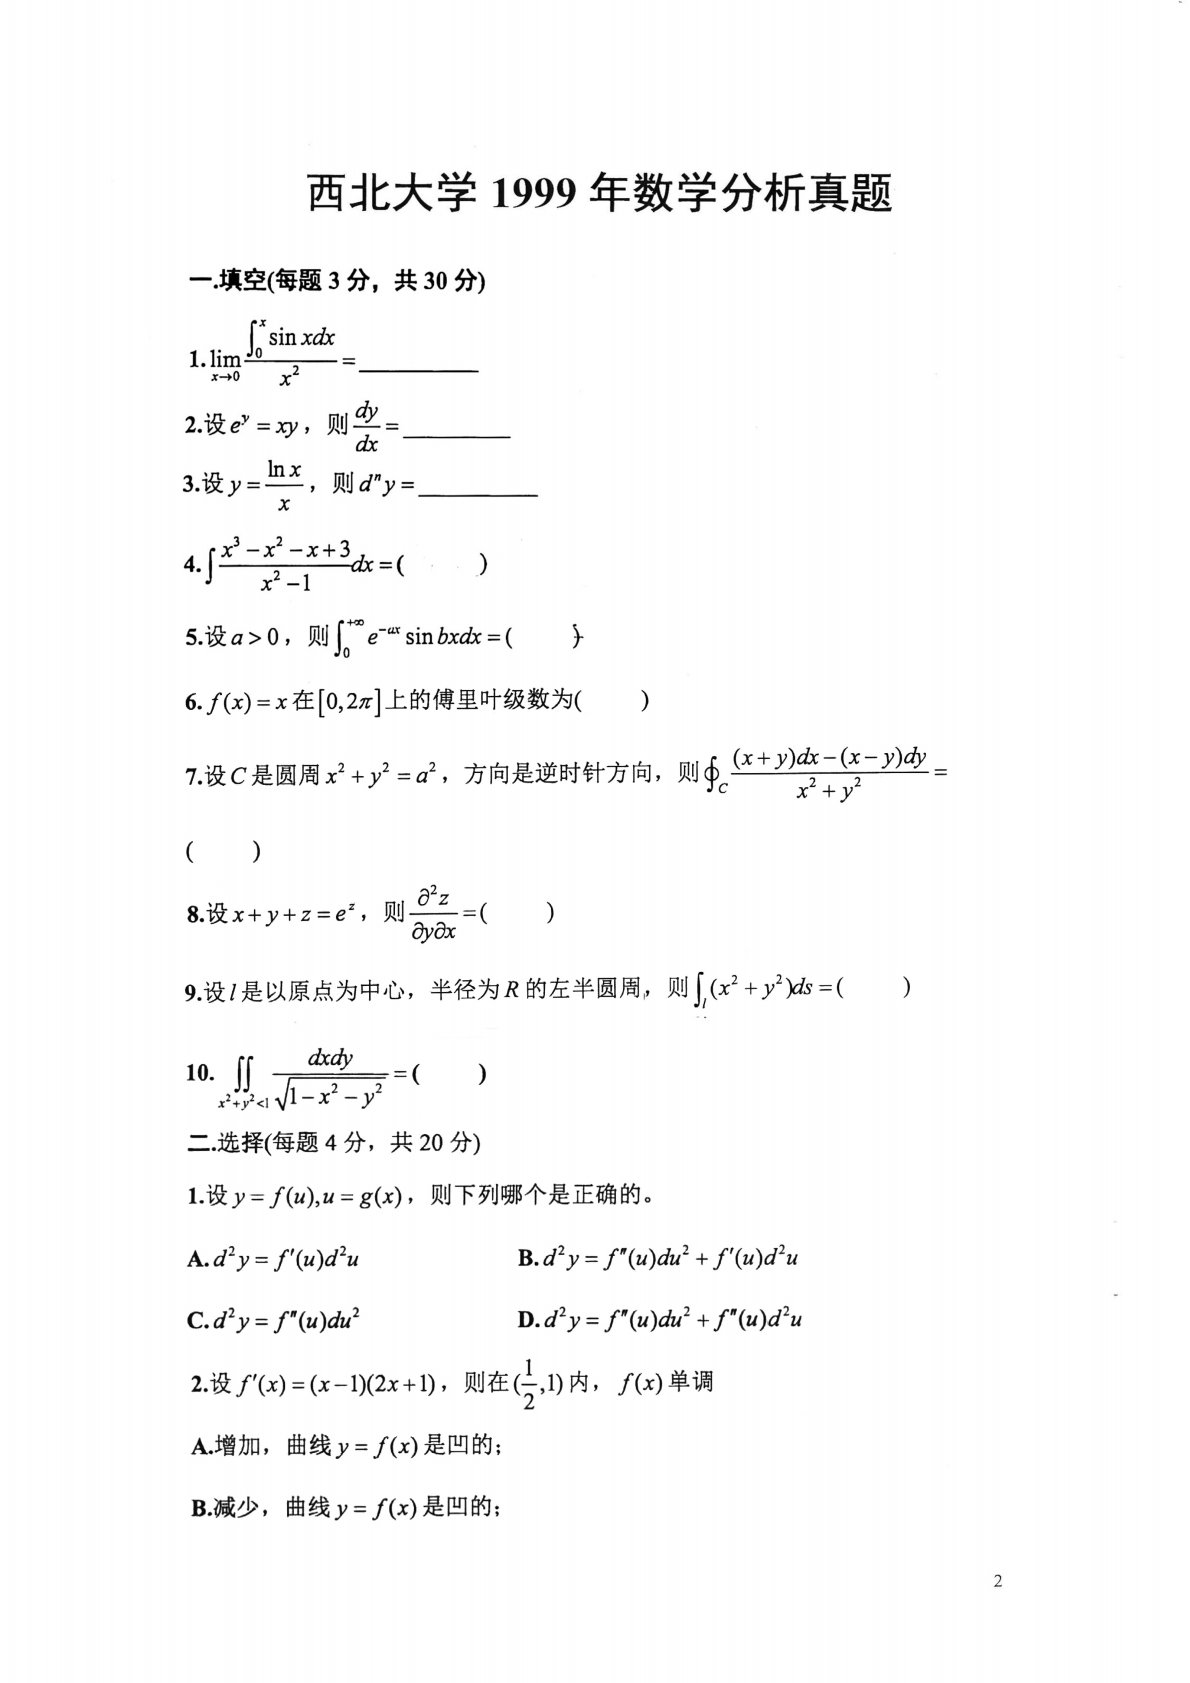 西北大学 1999 年数学分析真题
一.填空(每题 3 分，共 30 分)
1. $\lim_{x \to 0} \frac{\int_0^x \sin x dx}{x^2} =$ ________
2.设 $e^y = xy$，则 $\frac{dy}{dx} =$ ________
3.设 $y = \frac{\ln x}{x}$，则 $d^n y =$ ________
4. $\int \frac{x^3 - x^2 - x + 3}{x^2 - 1} dx = ($ $)$
5.设 $a > 0$，则 $\int_0^{+\infty} e^{-ax} \sin bx dx = ($ $)$
6. $f(x) = x$ 在 $[0, 2\pi]$ 上的傅里叶级数为( )
7.设 $C$ 是圆周 $x^2 + y^2 = a^2$，方向是逆时针方向，则 $\oint_C \frac{(x+y)dx - (x-y)dy}{x^2 + y^2} =$
( )
8.设 $x + y + z = e^z$，则 $\frac{\partial^2 z}{\partial y \partial x} = ($ $)$
9.设 $l$ 是以原点为中心，半径为 $R$ 的左半圆周，则 $\int_l (x^2 + y^2) ds = ($ $)$
10. $\iint_{x^2+y^2<1} \frac{dxdy}{\sqrt{1 - x^2 - y^2}} = ($ $)$
二.选择(每题 4 分，共 20 分)
1.设 $y = f(u), u = g(x)$，则下列哪个是正确的。
A. $d^2 y = f'(u) d^2 u$ B. $d^2 y = f''(u) du^2 + f'(u) d^2 u$
C. $d^2 y = f''(u) du^2$ D. $d^2 y = f''(u) du^2 + f''(u) d^2 u$
2.设 $f'(x) = (x-1)(2x+1)$，则在 $(\frac{1}{2}, 1)$ 内，$f(x)$ 单调
A.增加，曲线 $y = f(x)$ 是凹的；
B.减少，曲线 $y = f(x)$ 是凹的；
2